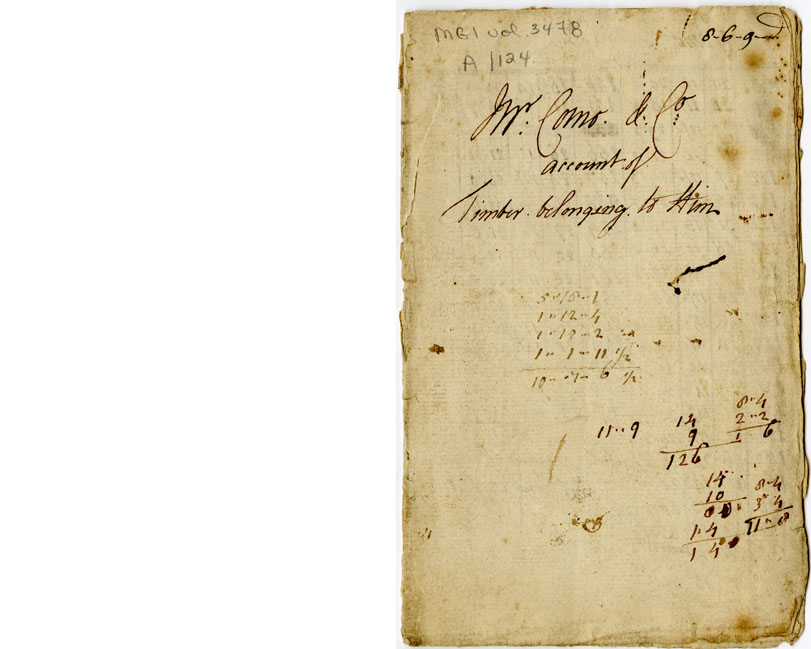 MG1 vol. 3478
A 1124
8-6-9
Mr. Como. & Co.
account of
Timber belonging to Him
1 " 12 " 4
1 " 19 " 2
1 " 1 " 11 1/2
11 " 9
14
9
126
8 " 4
2 " 2
1 6
14
10
14
14
8 " 4
3 " 4
11 " 8